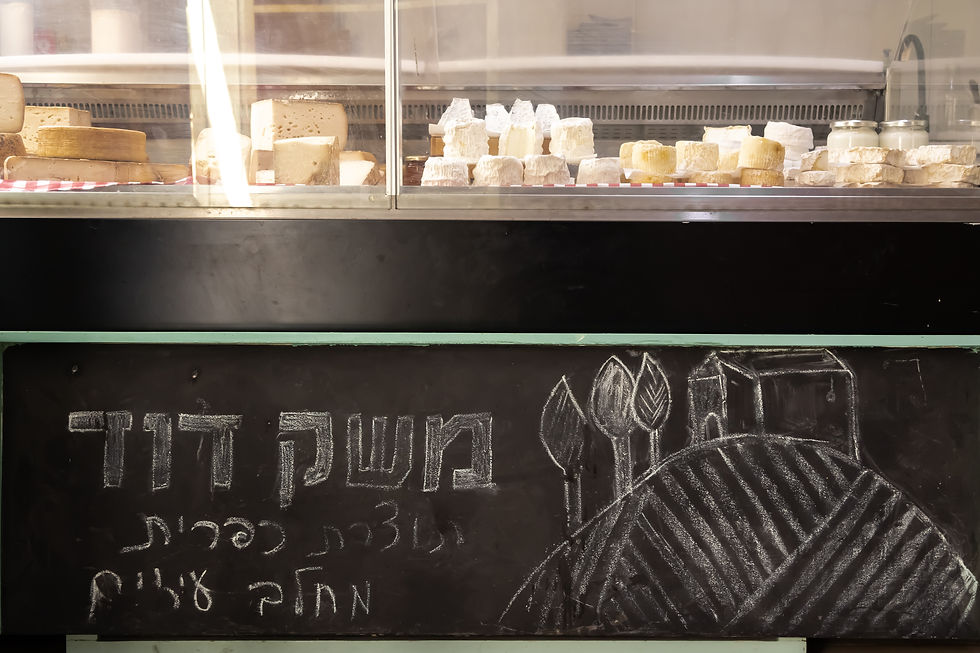 משק דוד
תוצרת כפרית
מחלב עיזים